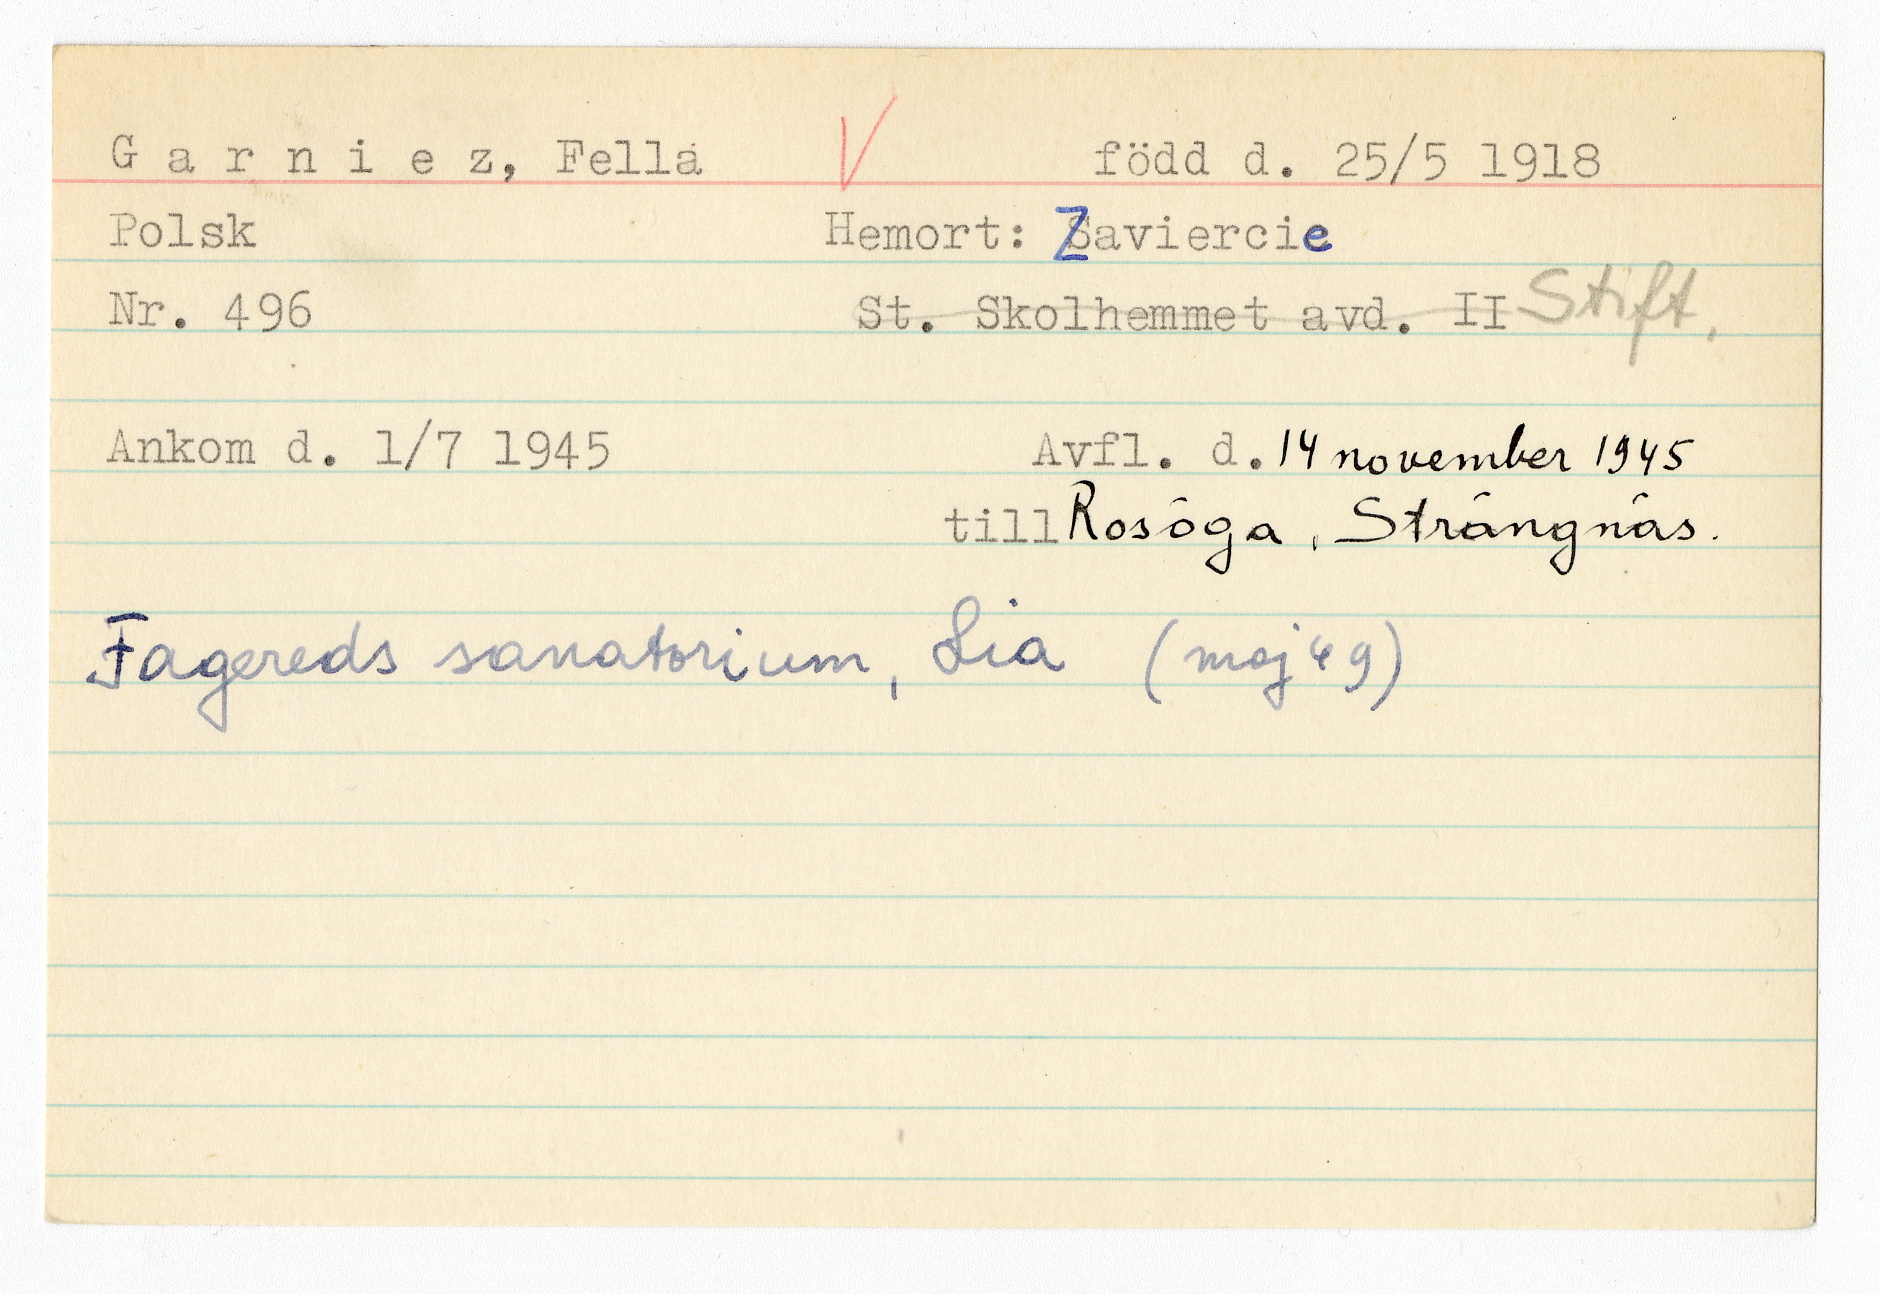 G a r n i e z, Fella V född d. 25/5 1918
Polsk Hemort: Zaviercie
Nr. 496 St. Skolhemmet avd. II Stift.
Ankom d. 1/7 1945 Avfl. d. 14 november 1945
till Rosöga, Strängnäs.
Fagereds sanatorium, Lia (maj 49)